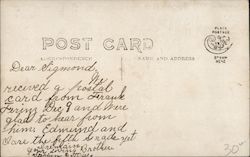 POST CARD
CORRESPONDENCE
NAME AND ADDRESS
PLACE
POSTAGE
STAMP
HERE
Dear Sigmond. We
recived a postal
card from Frank
Dec 9 and were
glad to hear from
him. Edmund and
are the fifth Grade yet
your loving Brother
30